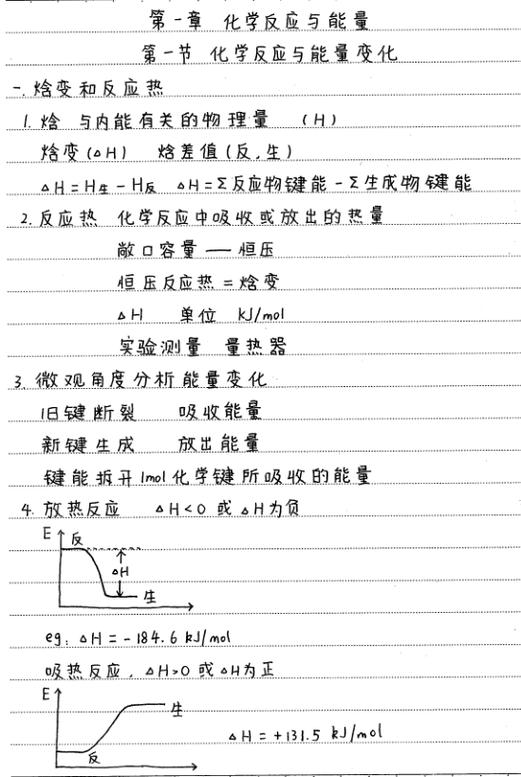 第一章 化学反应与能量
第一节 化学反应与能量变化
一. 焓变和反应热
1. 焓 与内能有关的物理量 (H)
焓变(△H) 焓差值(反.生)
△H=H生-H反 △H=Σ反应物键能-Σ生成物键能
2. 反应热 化学反应中吸收或放出的热量
敞口容量——恒压
恒压反应热=焓变
△H 单位 kJ/mol
实验测量 量热器
3. 微观角度分析能量变化
旧键断裂 吸收能量
新键生成 放出能量
键能拆开1mol化学键所吸收的能量
4. 放热反应 △H<0 或△H为负
E 反
△H
生
eg: △H=-184.6 kJ/mol
吸热反应. △H>0 或△H为正
E
生
△H=+131.5 kJ/mol
反